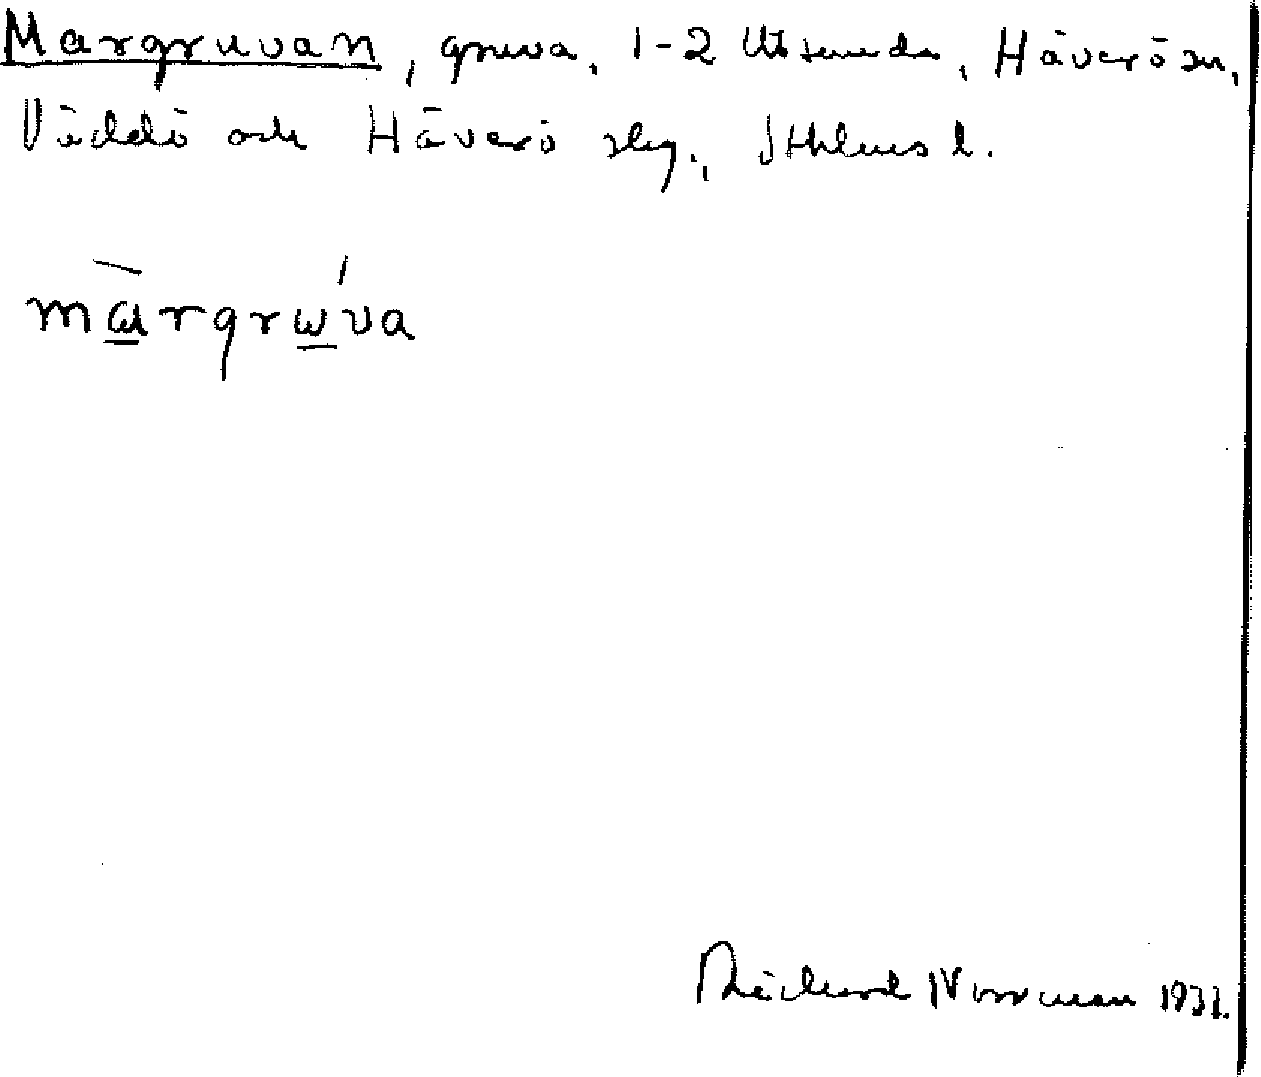 Margruvan, gruva, 1-2 Utsunda, Häverö sn,
Väddö och Häverö slg., Sthlms l.
mɑrgrωva
Rickard Norrman 1937.